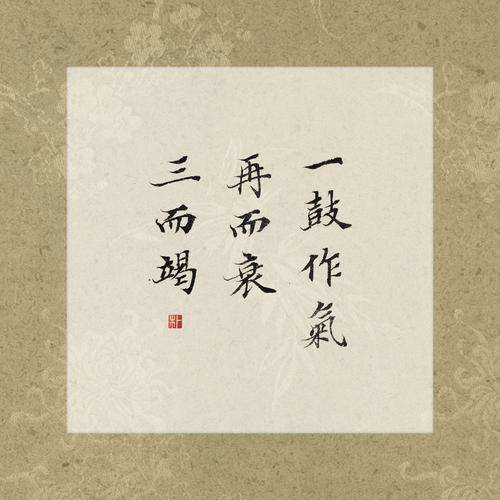 一鼓作氣
再而衰
三而竭